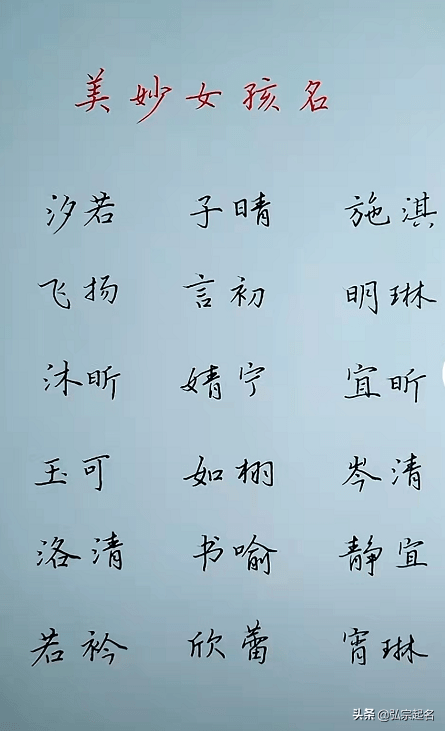 美妙女孩名
汐若 子晴 施淇
飞扬 言初 明琳
沐昕 婧宁 宜昕
玉可 如栩 岑清
洛清 书喻 静宜
若衿 欣蕾 宵琳
头条 @弘宗起名